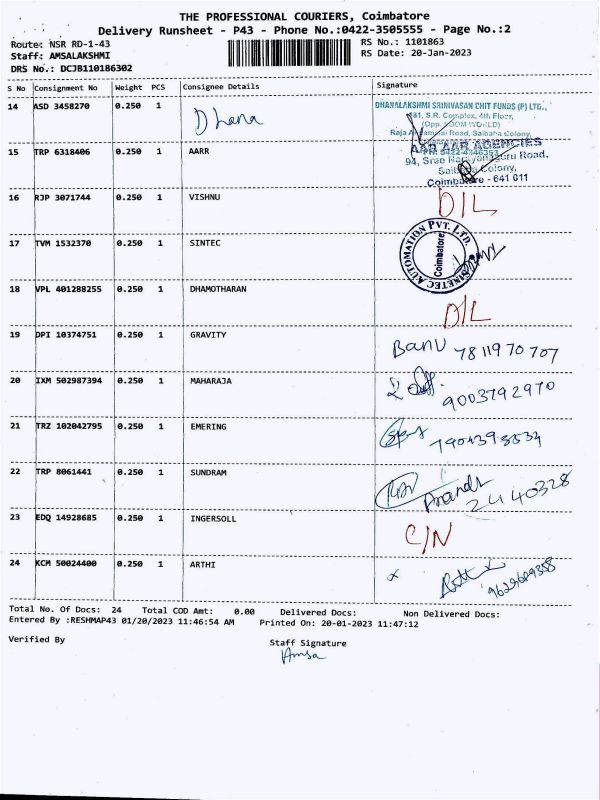 THE PROFESSIONAL COURIERS, Coimbatore
Delivery Runsheet - P43 - Phone No.:0422-3505555 - Page No.:2
Route: NSR RD-1-43
RS No.: 1101863
Staff: AMSALAKSHMI
RS Date: 20-Jan-2023
DRS No.: DCJB110186302
S No Consignment No Weight PCS Consignee Details Signature
14 ASD 3458270 0.250 1 Dhana
DHANALAKSHMI SRINIVASAN CHIT FUNDS (P) LTG.,
S.R. Complex, 4th Floor,
Road, Saibaba Colony,
15 TRP 6318406 0.250 1 AARR
AAR AAR AGENCIES
94, Sree Narayanaguru Road,
Colony,
Coimbatore - 641 011
16 RJP 3071744 0.250 1 VISHNU D/L
17 TVM 1532370 0.250 1 SINTEC
AUTOMATION PVT. LTD.
Coimbatore
18 VPL 401288255 0.250 1 DHAMOTHARAN D/L
19 DPI 10374751 0.250 1 GRAVITY Banu 7811970707
20 IXM 502987394 0.250 1 MAHARAJA 9003792970
21 TRZ 102042795 0.250 1 EMERING
22 TRP 8061441 0.250 1 SUNDRAM Anandh 2440328
23 EDQ 14928685 0.250 1 INGERSOLL C/N
24 KCM 50024400 0.250 1 ARTHI
Total No. Of Docs: 24 Total COD Amt: 0.00 Delivered Docs: Non Delivered Docs:
Entered By :RESHMAP43 01/20/2023 11:46:54 AM Printed On: 20-01-2023 11:47:12
Verified By Staff Signature
Amsa